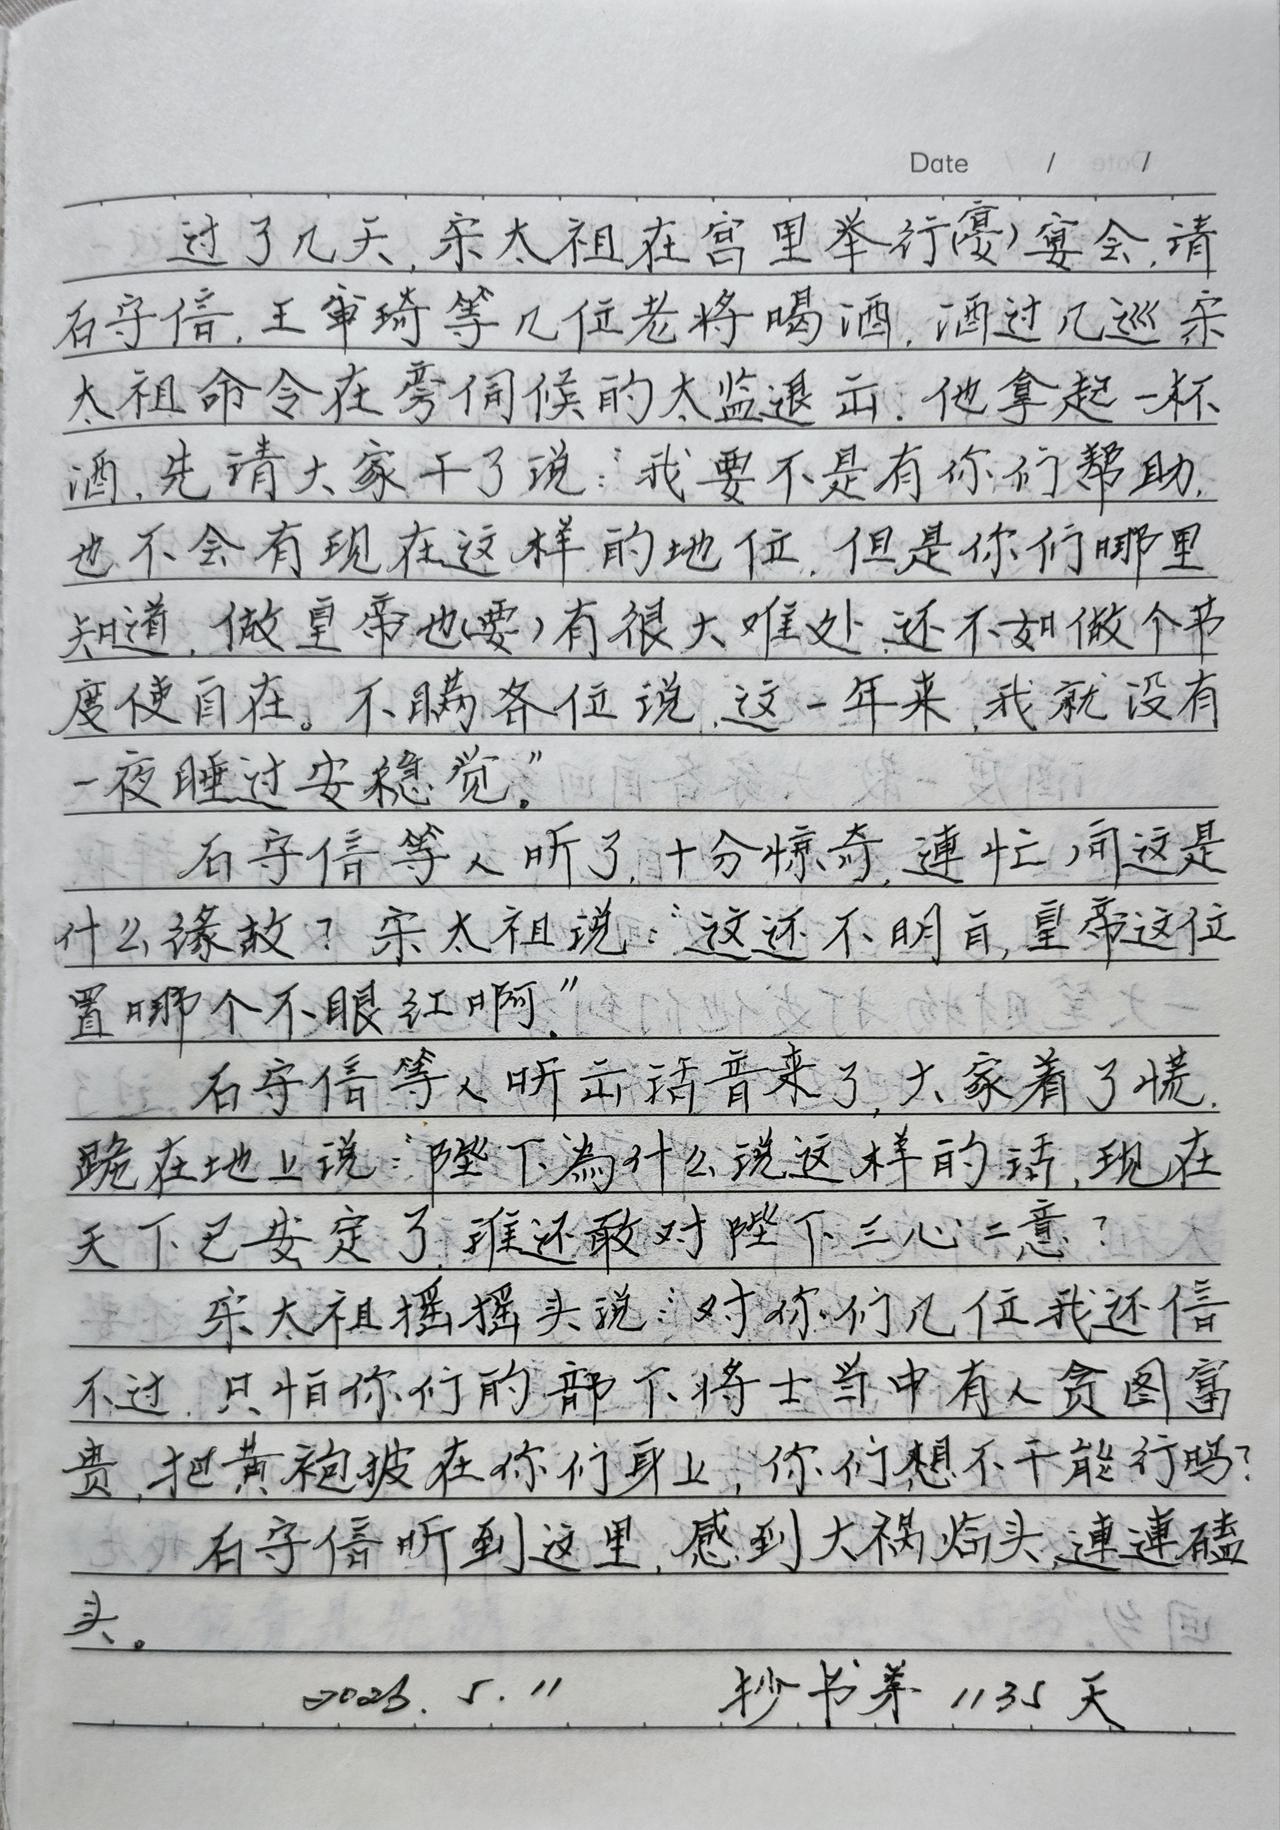 Date / /
过了几天，宋太祖在宫里举行（宴）宴会，请
石守信，王审琦等几位老将喝酒，酒过几巡宋
太祖命令在旁伺候的太监退出，他拿起一杯
酒，先请大家干了说："我要不是有你们帮助，
也不会有现在这样的地位，但是你们哪里
知道，做皇帝也（要）有很大难处，还不如做个节
度使自在。不瞒各位说，这一年来，我就没有
一夜睡过安稳觉。"
石守信等人听了，十分惊奇，連忙问这是
什么缘故？宋太祖说："这还不明白，皇帝这位
置哪个不眼红啊。"
石守信等人听出话音来了，大家着了慌，
跪在地上说："陛下為什么说这样的话，现在
天下已安定了，谁还敢对陛下三心二意？
宋太祖摇摇头说："对你们几位我还信
不过，只怕你们的部下将士当中有人贪图富
贵，把黄袍披在你们身上，你们想不干能行吗？
石守信听到这里，感到大祸临头，連連磕
头。
2023.5.11 抄书第1135天